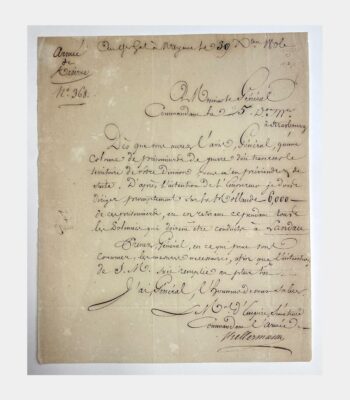 Armée
de
Réserve
N.° 368.
Au Q.er G.al à Mayence le 30 X.bre 1806.
A Monsieur le Général
Commandant la 5 D.on M.re
à Strasbourg
Dès que vous aurez, l'avis, Général, qu'une
Colonne de prisonniers de guerre doit traverser le
territoire de votre Division, vous m'en préviendrez de
suite. D'après l'intention de l'Empereur je dois
diriger promptement sur la Hollande 6,000
de ces prisonniers, en en retirant cependant tous
les Polonais qui doivent être conduits à Landau
Prenez, Général, en ce qui vous
concerne, les mesures nécessaires, afin que l'intention
de S. M. soit remplie au plus tôt.
J'ai, Général, l'honneur de vous saluer
Le M.al d'Empire Sénateur
Commandant l'armée
Kellermann